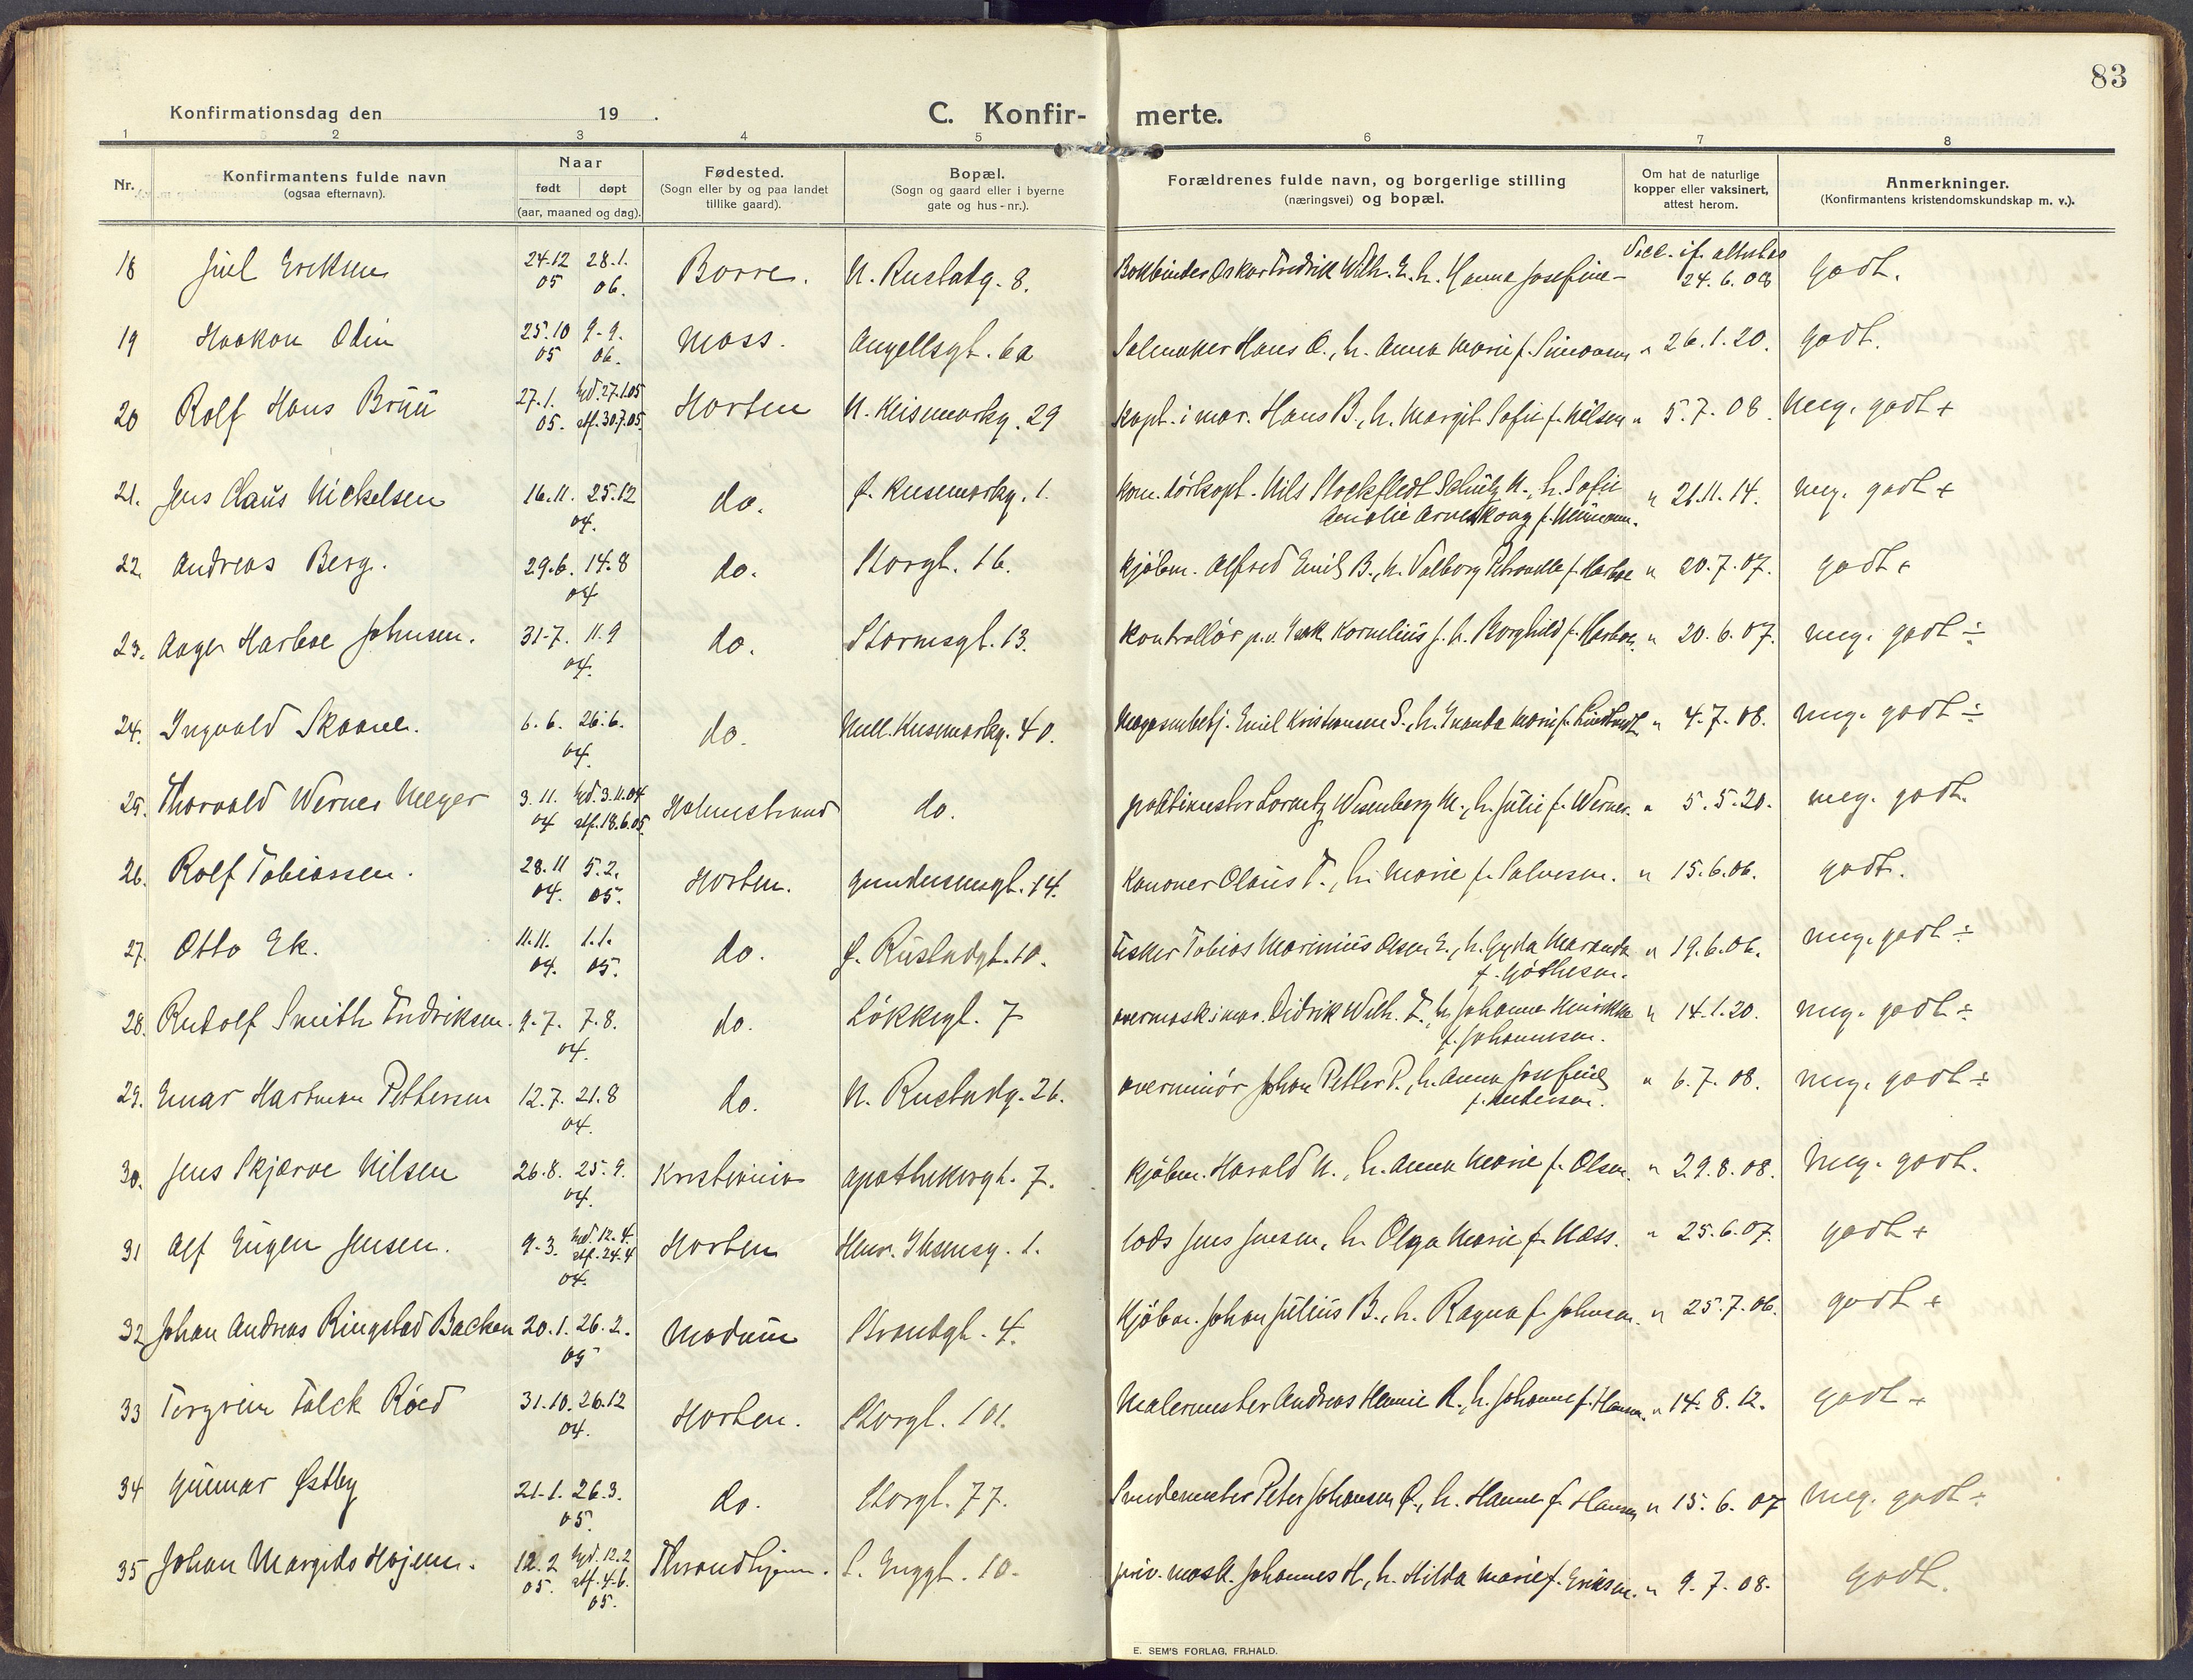 83
Konfirmationsdag den 19 .
C. Konfir- merte.
1 2 3 4 5 6 7 8
Nr.
Konfirmantens fulde navn
(ogsaa efternavn).
Naar
født døpt
(aar, maaned og dag).
Fødested.
(Sogn eller by og paa landet
tillike gaard).
Bopæl.
(Sogn og gaard eller i byerne
gate og hus-nr.).
Forældrenes fulde navn, og borgerlige stilling
(næringsvei) og bopæl.
Om hat de naturlige
kopper eller vaksinert,
attest herom.
Anmerkninger.
(Konfirmantens kristendomskundskap m. v.).
18 Juel Eriksen 24.12 05 28.1. 06. Borre. N. Rustadg. 8. Bokbinder Oskar Fredrik Wilh. E. h. Hanna Josefine - Vacc. if. attester 24.6.08 godt.
19 Haakon Odin 25.10 05 9.9. 06. Moss. Angellsgt. 6a Salmaker Hans O., h. Anna Marie f. Simonsen " 26.1.20. godt.
20 Rolf Hans Bruu 27.1. 05. hjd. 27.1.05 stf. 30.7.05. Horten N. Keisemarkg. 29 Kapt. i mar. Hans B., h. Margit Sofie f. Nilsen " 5.7.08. Meg. godt +
21. Jens Claus Nickelsen 16.11. 25.12 04. do. f. Keisemarkg. 1. Nils Stockfledt Schütz N., h. Sofie
Amalie f. Neumann. " 21.11.14. meg. godt +
22. Andreas Berg. 29.6. 14.8 04 do. Storgt. 16. Kjöbm. Alfred Emil B., h. Valborg Petronella f. Harboe " 20.7.07. godt +
23. Aage Harboe Johnsen. 31.7. 11.9 04. do. Stormsgt. 13. Kontrollör p.v. Isak Kornelius J. h. Borghild f. Harboe. " 20.6.07. meg. godt ÷
24. Ingvald Skaane. 6.6. 26.6. 04. do. Mell. Keisemarkg. 40. Magasinbetj. Emil Kristiansen S., h. Marie f. " 4.7.08. meg. godt ÷
25. Thorvald Werner Meyer 3.11. 04 hjd. 3.11.04 stf. 18.6.05. Holmestrand do. politimester Lorentz Wesenberg M., h. Julie f. Werner. " 5.5.20. meg. godt.
26. Rolf Tobiassen. 28.11 04. 5.2. 05. Horten. Gundersensgt. 14. Kanoner Olaus T., h. Marie f. Salvesen. " 15.6.06. godt.
27. Otto Ek. 11.11. 04. 1.1. 05. do. f. Rustadgt. 10. Fisker Tobias Marinius Olsen E., h. Gyda Maranda
f. Göthesen. " 19.6.06. meg. godt ÷
28. Rudolf Smith Fredriksen. 9.7. 7.8. 04. do. Lökkegt. 7 overmask i mar. Didrik Wilh. F., h. Johanna Henrikka
f. Johannesen. " 14.1.20. meg. godt ÷
29. Einar Hartman Pettersen 12.7. 21.8 04. do. N. Rustadg. 26. overminör Johan Petter P., h. Anna Josefine
f. Andersen. " 6.7.08. meg. godt ÷
30. Jens Skjærve Nilsen 26.8. 25.9. 04. Kristiania Apothekergt. 7. Kjöbm. Harald N., h. Anna Marie f. Olsen. " 29.8.08. Meg. godt.
31 Alf Eugen Jensen. 9.3. hjd. 12.4. stf. 24.4 04. Horten Henr. Ibsensg. 1. Lods Jens Jensen, h. Olga Marie f. Næss. " 25.6.07. godt +
32 Johan Andreas Ringstad Backen 20.1. 26.2. 05 Modum Strandgt. 4. Kjöbm. Johan Julius B., h. Ragna f. Johnsen. " 25.7.06. godt +
33 Torgrim Falck Röed 31.10. 26.12 04. Horten. Storgt. 101. Malermester Andreas R., h. Johanne f. Hansen. " 14.8.12. godt +
34 Gunnar Østby 21.1. 26.3. 05. do. Storgt. 77. Smedemester Peter Johansen Ø., h. Hanna f. Hansen " 15.6.07 meg. godt ÷
35 Johan Margido Höjem. 12.2 05. hjd. 12.2 stf. 4.6. 05. Throndhjem. S. Enggt. 10. priv. mask. Johannes H, h. Hilda Marie f. Eriksen. " 9.7.08. godt.
E. SEM'S FORLAG, FR.HALD.